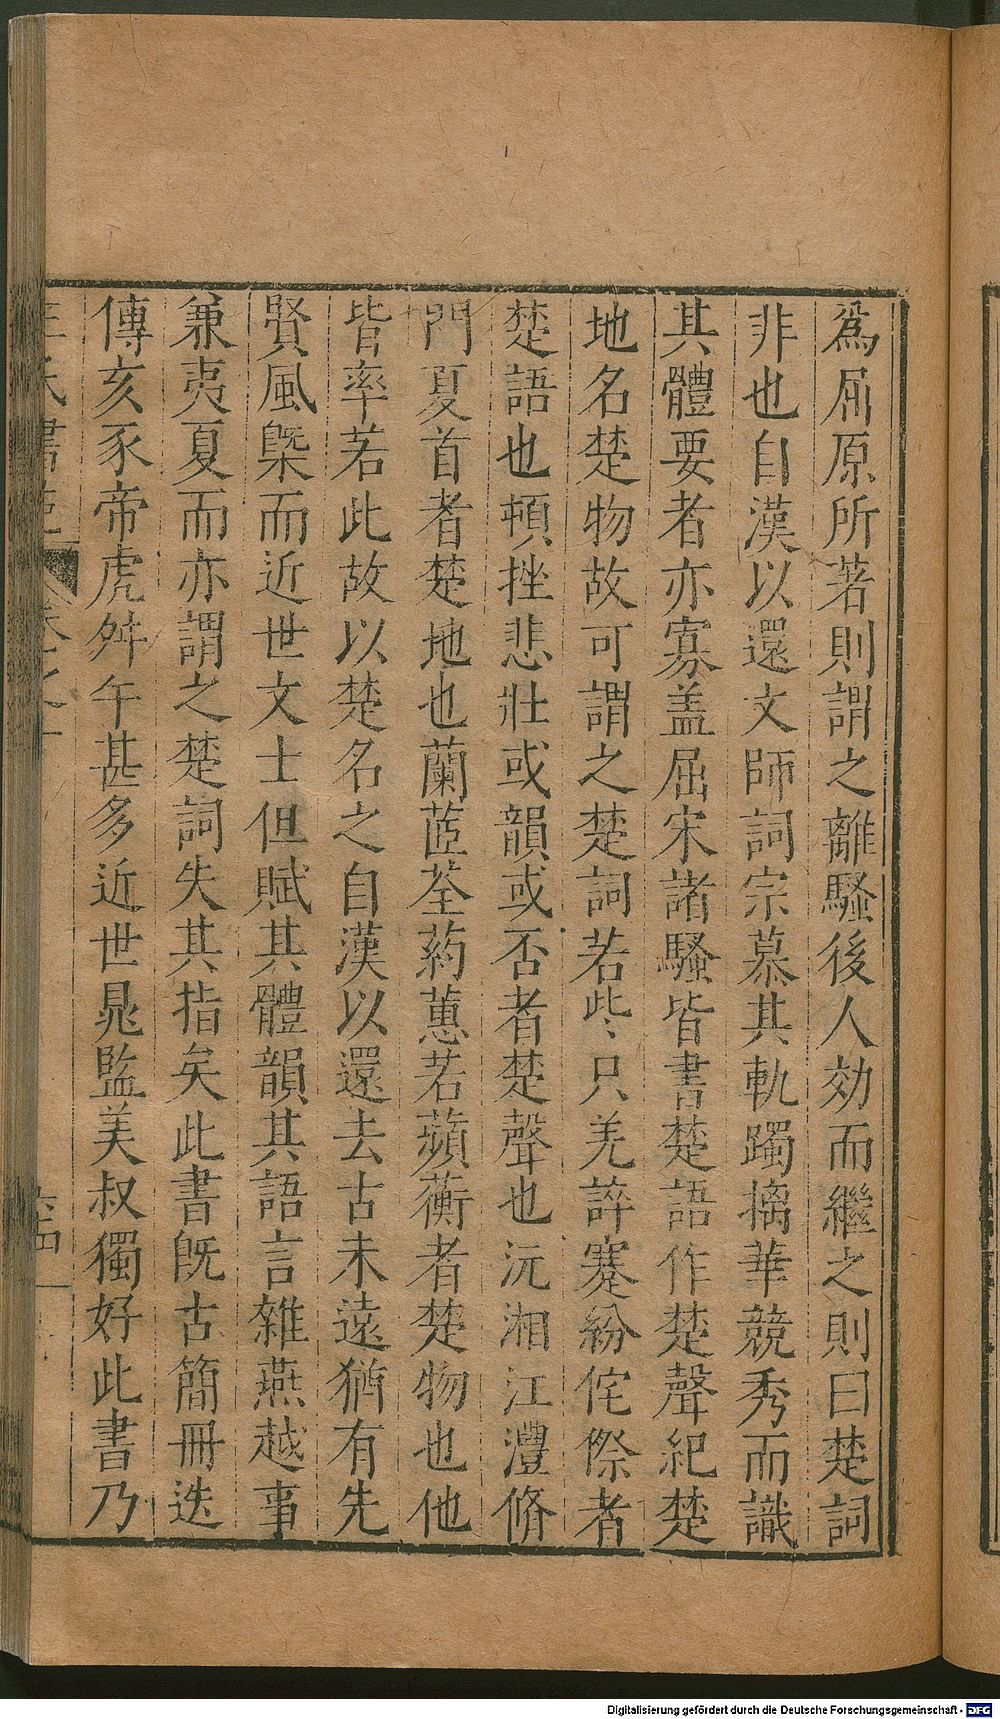 爲屈原所著則謂之離騷後人効而繼之則曰楚詞
非也自漢以還文師詞宗慕其軌躅摛華競秀而識
其體要者亦寡盖屈宋諸騷皆書楚語作楚聲紀楚
地名楚物故可謂之楚詞若些只羌誶蹇紛侘傺者
楚語也頓挫悲壯或韻或否者楚聲也沅湘江澧脩
門夏首者楚地也蘭茝荃葯蕙若蘋蘅者楚物也他
皆率若此故以楚名之自漢以還去古未遠猶有先
賢風槩而近世文士但賦其體韻其語言雜燕越事
兼夷夏而亦謂之楚詞失其指矣此書旣古簡冊迭
傳亥豕帝虎舛午甚多近世晁監美叔獨好此書乃
王氏書苑 卷之十 六四
Digitalisierung gefördert durch die Deutsche Forschungsgemeinschaft - DFG